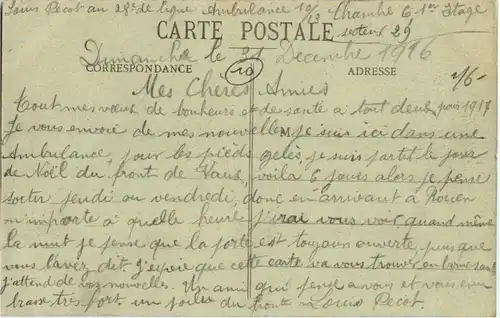 Louis Pecot au 28e de ligne Ambulance 10/13 Chambre 6 1er Etage
CARTE POSTALE
secteur 29
Dimanche le 31 Decembre 1916
CORRESPONDANCE
10
ADRESSE
Mes Chères Amies
Tout mes vœux de bonheurs et de santé à tout deux pour 1917
Je vous envoie de mes nouvelles je suis ici dans une
Ambulance, pour les pièds gelés, je suis partit le jour
de Noël du front de Vaux, voila 6 jours alors je pense
sortir jeudi ou vendredi, donc en arrivant à Rouen
n'importe à quelle heure j'irai vous voir, quand même
la nuit je pense que la porte est toujours ouverte, puis que
vous l'avez dit. J'espère que cette carte va vous trouver en bonne santé
j'attend de vos nouvelles. Un ami qui pense a vous et vous em
brasse très fort un poilu du front Louis Pecot